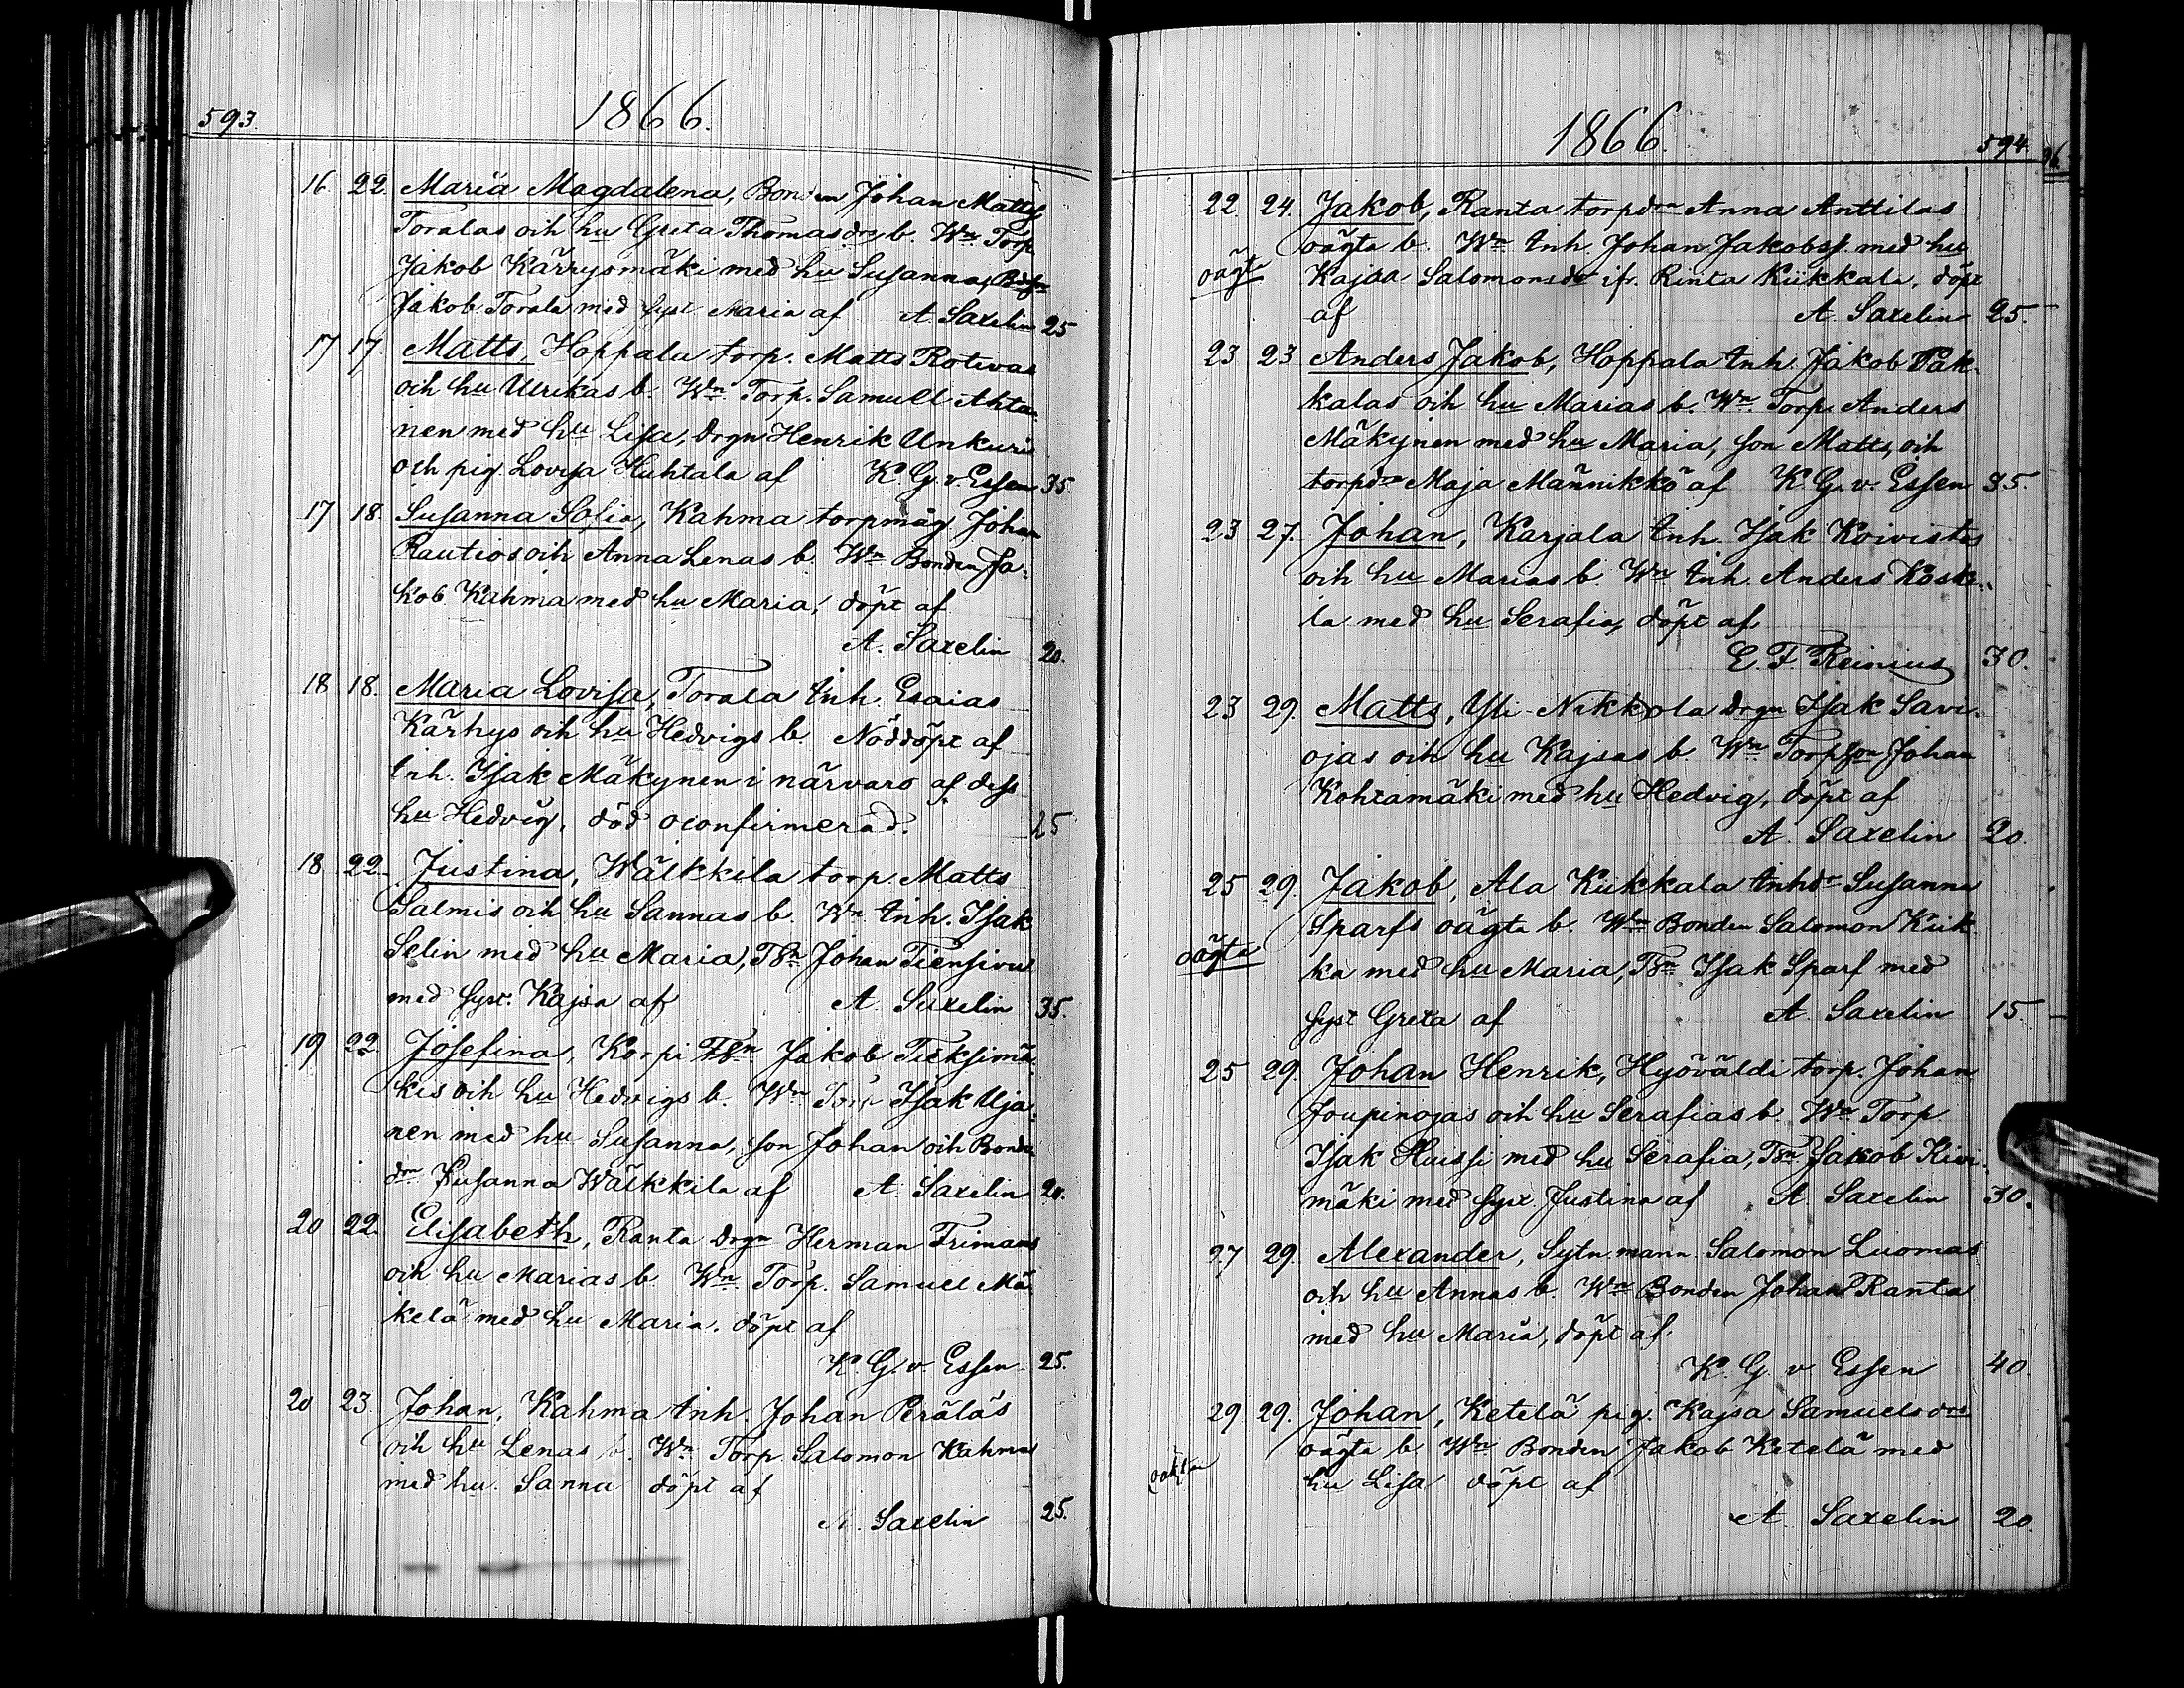 593.
1866.
16 22. Maria Magdalena, Bonden Johan Mattss
Toralas och hu Greta Thomasdrs b. Wn Torp
Jakob Kärrysmäki med hu Susanna,
Jakob Torala med syst Maria af A. Saxelin 25
17 17. Matts, Hoppala torp. Matts Rotivas
och hu Ulrikas b. Wn. Torp. Samuel Ahta-
nen med hu Lisa, drgn Henrik Unkuri
och pig. Lovisa Huhtala af K. G. v Essen 35.
17 18. Susanna Sofia, Kahma torpmåg Johan
Rautios och Anna Lenas b. Wn Bonden Ja-
kob Kahma med hu Maria, döpt af
A. Saxelin 20.
18 18. Maria Lovisa, Torala Inh. Esaias
Kärhys och hu Hedvigs b. Nöddöpt af
Inh. Isak Mäkynen i närvaro af dess
hu Hedvig, död oconfirmerad. 25
18 22. Justina, Wälkkilä torp. Matts
Salmis och hu Sannas b. Wn Inh. Isak
Selin med hu Maria, TSn Johan Tiensivu
med syst. Kajsa af A. Saxelin 35.
19 22. Josefina, Korpi TSn Jakob Tieksimä-
kis och hu Hedvigs b. Wn Torp Isak Uja-
nen med hu Susanna, son Johan och Bonde
drn Susanna Wälkkilä af A. Saxelin 20.
20 22. Elisabeth, Ranta drgn Herman Frimans
och hu Marias b. Wn. Torp. Samuel Mä-
kelä med hu Maria, döpt af
K. G. v. Essen 25.
20 23. Johan, Kahma Inh. Johan Peräläs
och hu Lenas b. Wn. Torp Salomon Kahma
med hu. Sanna döpt af
A. Saxelin 25.
1866.
594.
22 24. Jakob, Ranta torpdrn Anna Anttilas
oägta b. Wn Inh. Johan Jakobss. med hu
oägt Kajsa Salomonsdr ifr. Rinta Kiikkala, döpt
af A. Saxelin 25.
23 23 Anders Jakob, Hoppala Inh. Jakob Pak-
kalas och hu Marias b. Wn. Torp. Anders
Mäkynen med hu Maria, son Matts, och
torpdrn Maja Männikkö af K. G. v. Essen 35.
23 27. Johan, Karjala Inh. Isak Koivistos
och hu Marias b. Wn Inh. Anders Koski-
la med hu Serafia, döpt af
E. F. Reinius 30.
23 29. Matts, Yli-Nikkola drgn Isak Savi-
ojas och hu Kajsas b. Wn Torpson Johan
Kohtamäki med hu Hedvig, döpt af
A. Saxelin 20.
25 29. Jakob, Ala Kiikkala Inhdr Susanna
Sparfs oägta b. Wn Bonden Salomon Kiik-
oägta ka med hu Maria, TSn Isak Sparf med
syst Greta af A. Saxelin 15.
25 29. Johan Henrik, Hyöväldi torp. Johan
Joupinojas och hu Serafias b. Wn. Torp
Isak Huissi med hu Serafia, TSn Jakob Kivi-
mäki med syst. Justina af A. Saxelin 30.
27 29. Alexander, Sytn. mann. Salomon Luomas
och hu Annas b. Wn Bonden Johan Ranta
med hu Maria, döpt af
K. G. v Essen 40.
29 29. Johan, Ketelä pig. Kajsa Samuelsdrs
oägta b. Wn Bonden Jakob Ketelä med
oäkta hu Lisa döpt af
A. Saxelin 20.